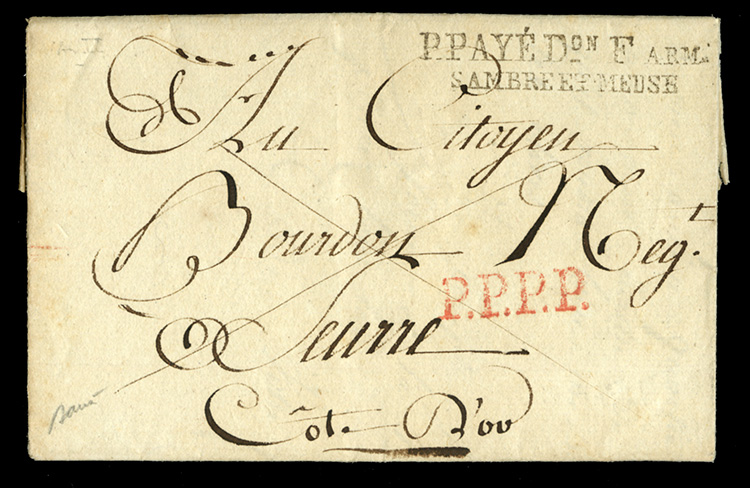 P.PAYÉ Dᴼᴺ F ARM.
SAMBRE ET MEUSE
Au Citoyen
Bourdon Negᵗ.
P.P.P.P.
Seurre
Cote D'or